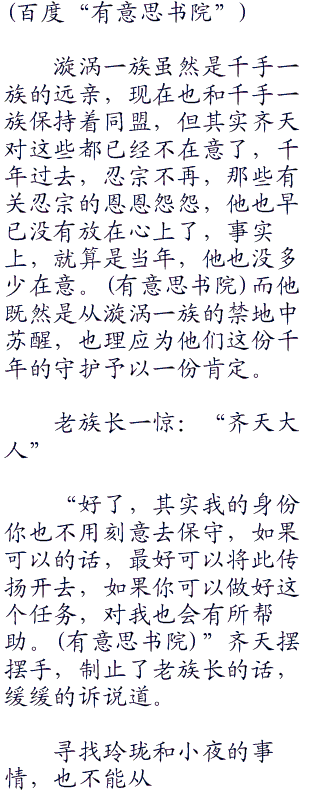 (百度“有意思书院”)
漩涡一族虽然是千手一
族的远亲，现在也和千手一
族保持着同盟，但其实齐天
对这些都已经不在意了，千
年过去，忍宗不再，那些有
关忍宗的恩恩怨怨，他也早
已没有放在心上了，事实
上，就算是当年，他也没多
少在意。(有意思书院)而他
既然是从漩涡一族的禁地中
苏醒，也理应为他们这份千
年的守护予以一份肯定。
老族长一惊：“齐天大
人”
“好了，其实我的身份
你也不用刻意去保守，如果
可以的话，最好可以将此传
扬开去，如果你可以做好这
个任务，对我也会有所帮
助。(有意思书院)”齐天摆
摆手，制止了老族长的话，
缓缓的诉说道。
寻找玲珑和小夜的事
情，也不能从